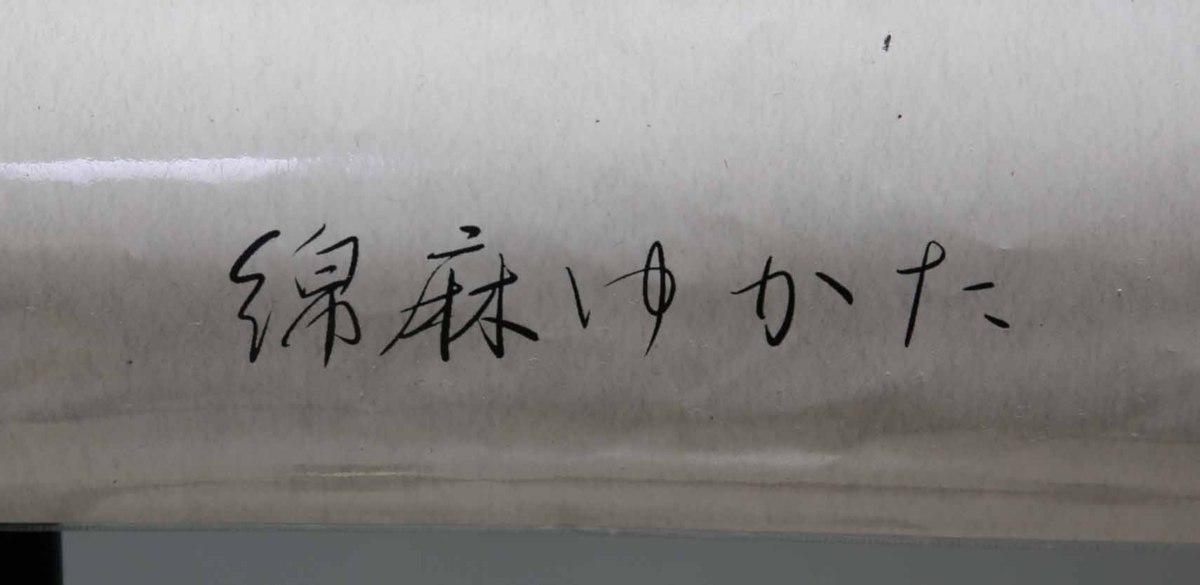 綿麻ゆかた